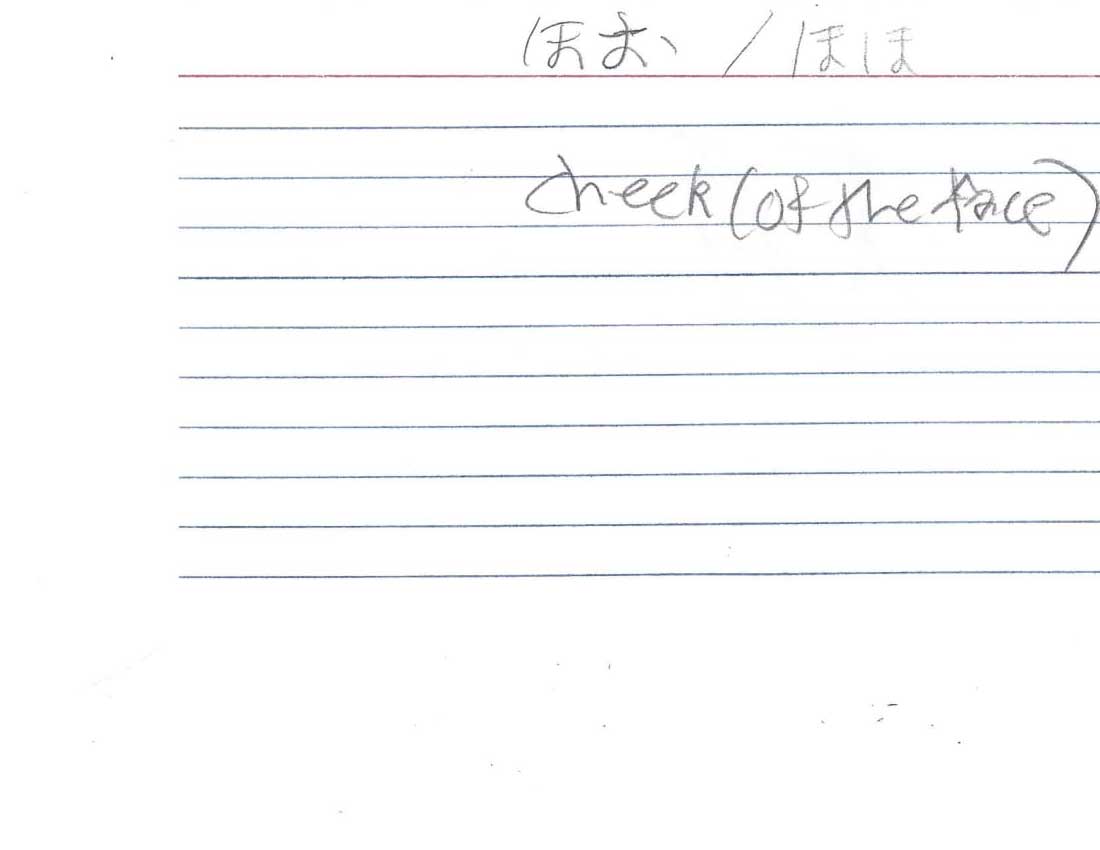 ほお / ほほ
cheek (of the face)